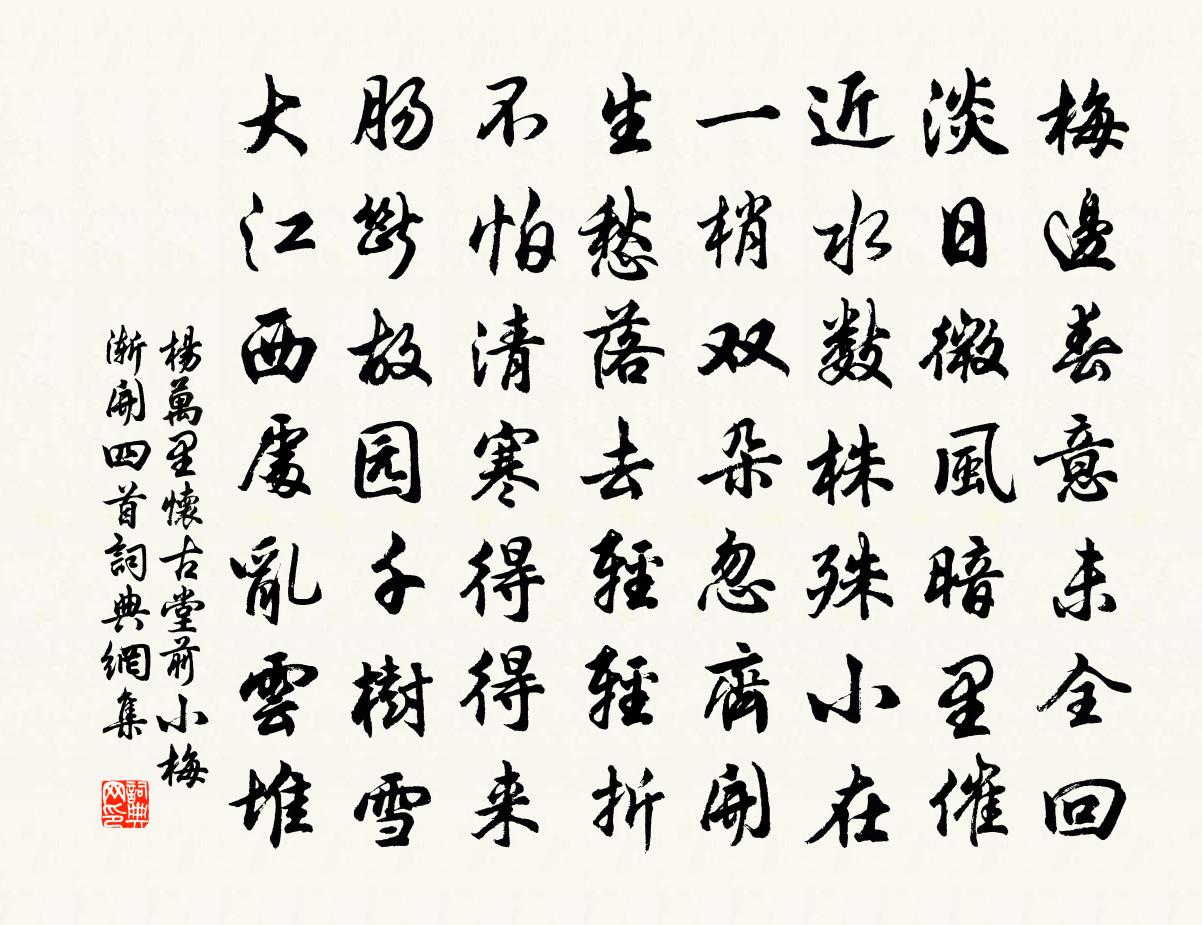 梅邊春意未全回
淡日微風暗里催
近水數株殊小在
一梢双朵忽齊開
生愁落去輕輕折
不怕清寒得得来
腸斷故园千樹雪
大江西處亂雲堆
楊萬里懷古堂前小梅
漸開四首詞典網集
詞典
网印